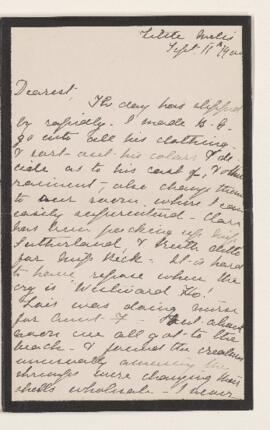 Little Metis
Sept 11th 1900
Dearest,
The day has slipped
by rapidly. I made G. C.
go into all his clothing.
& sort out his colours & de
cide as to his cast
raiment, also change them
to our room where I can
easily superintend. Clara
has been packing up Miss
Sutherland, & ditto
for Miss Peck. It is hard
to have repose when the
cry is Westward Ho!
Lois was doing mine
for Aunt but about
noon we all got to the
beach. & found the creatures
unusually amusing the
shrimps were changing their
shells wholesale. I never